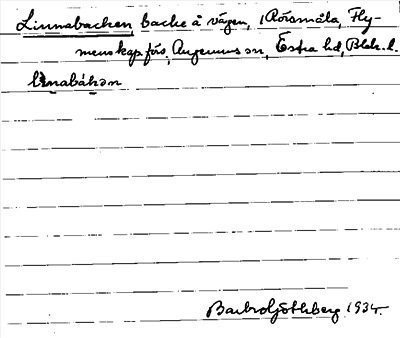 Linnabacken, backe å vägen, i Rörsmåla, Fly-
menskap.förs. Augerums sn, Östra hd, Blek. l.
linabákən
Barbro Göthberg 1934.